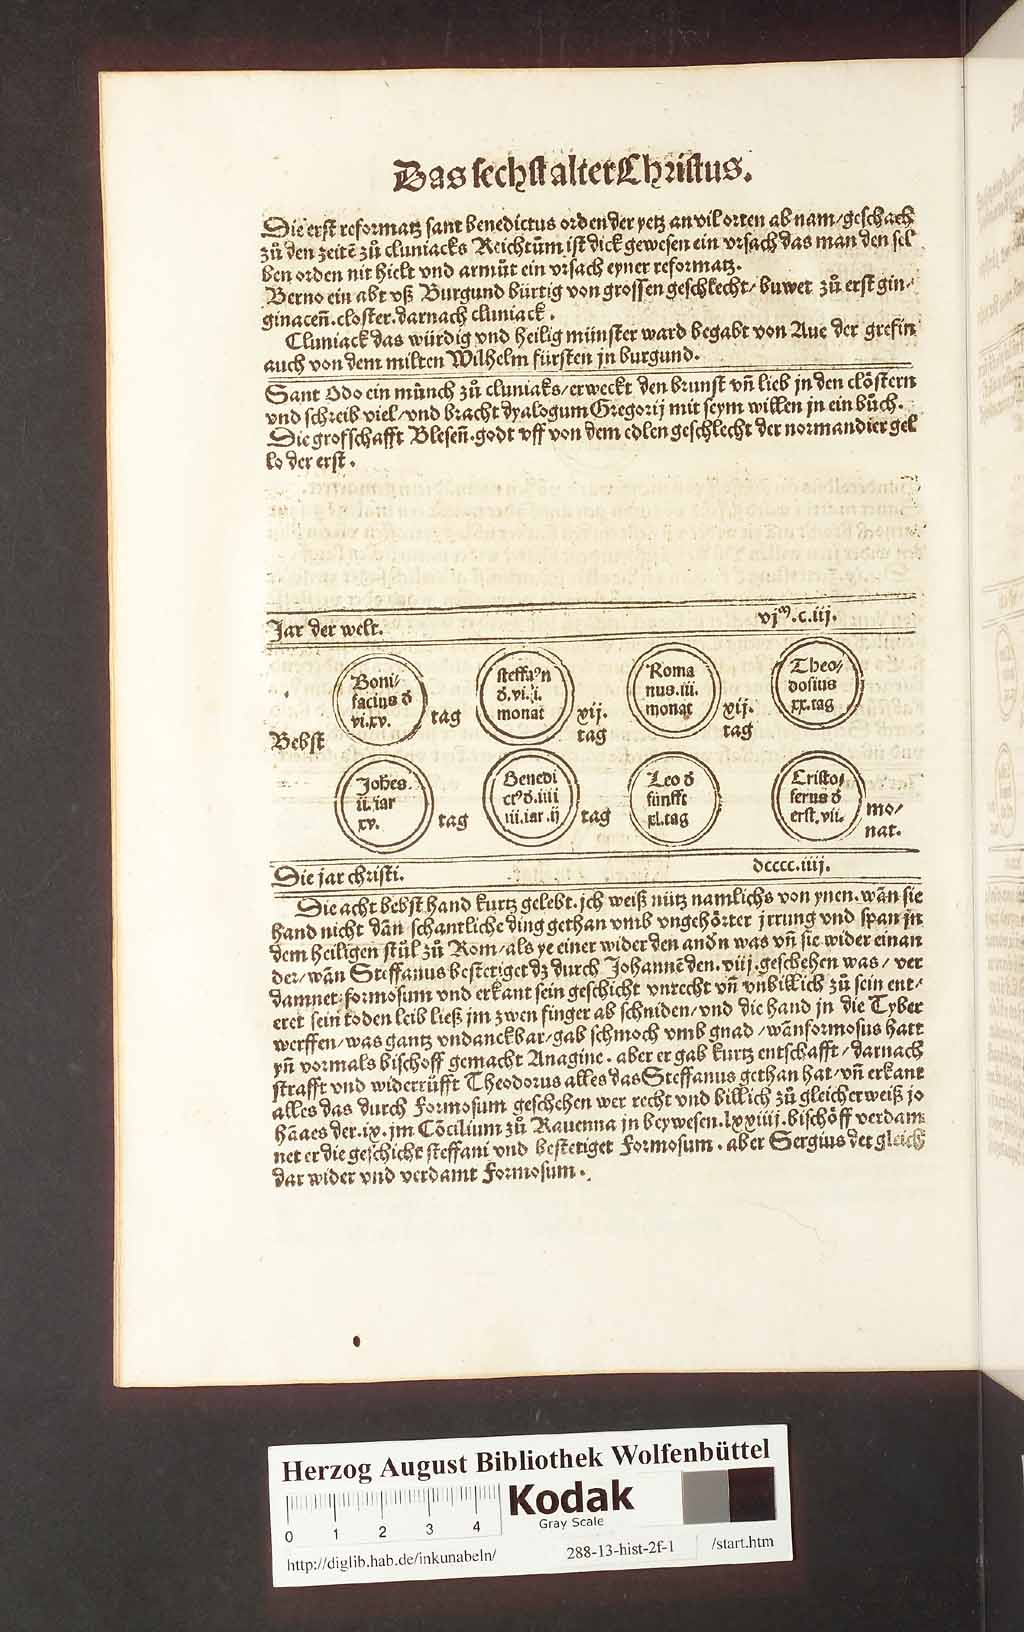 Das sechst alter Christus.
Die erst reformatz sant benedictus orden der yetz an vil orten ab nam/geschach
zů den zeitē zů cluniacks Reichtům ist dick gewesen ein vrsach das man den sel
ben orden nit hielt vnd armůt ein vrsach eyner reformatz.
Berno ein abt vß Burgund bürtig von grossen geschlecht/buwet zů erst gin/
ginacen̄.closter.darnach cluniack.
Cluniack das würdig vnd heilig münster ward begabt von Aue der grefin
auch von dem milten Wilhelm fürsten jn burgund.
Sant Odo ein münch zů cluniaks/erweckt den brunst vn̄ lieb jn den clöstern
vnd schreib viel/vnd bracht dyalogum Gregorij mit seym willen jn ein bůch.
Die grofschafft Blesen̄.godt vff von dem edlen geschlecht der normandier gel
lo der erst.
Jar der welt. vjᵐ.c.iij.
Boni/
facius d̄
vi.xv. tag
steffaꝰn
d̄.vi.i.
monat xij.
tag
Roma
nus.iii.
monat xij.
tag
Theo/
dosius
xx.tag
Bebst
Johēs.
ii.iar
xv. tag
Benedi
ctꝰd̄.iiii
iii.iar.ij tag
Leo d̄
fünfft
xl.tag
Cristo/
ferus d̄
erst.vii. mo/
nat.
Die jar christi. dcccc.iiij.
Die acht bebst hand kurtz gelebt.jch weiß nütz namlichs von ynen.wān sie
hand nicht dān schantliche ding gethan vmb vngehörter jrrung vnd span jn
dem heiligen stůl zů Rom/als ye einer wider den andn̄ was vn̄ sie wider einan
der/wān Steffanus bestetiget dz durch Johannē den.viij.geschehen was/ver
damnet formosum vnd erkant sein geschicht vnrecht vn̄ vnbillich zů sein ent/
eret sein toden leib ließ im zwen finger ab schniden/vnd die hand jn die Tyber
werffen/was gantz vndanckbar/gab schmoch vmb gnad/wānformosus hatt
yn̄ vormals bischoff gemacht Anagine.aber er gab kurtz entschafft/darnach
strafft vnd widerrüfft Theodorus alles das Steffanus gethan hat/vn̄ erkant
alles das durch Formosum geschehen wer recht vnd billich zů gleicherweiß jo
hāaes der.ix.jm Cōcilium zů Rauenna jn beywesen.lxxiiij.bischöff verdam
net er die geschicht steffani vnd bestetiget Formosum.aber Sergius det gleich
dar wider vnd verdamt Formosum.
Herzog August Bibliothek Wolfenbüttel
0 1 2 3 4
Kodak
Gray Scale
http://diglib.hab.de/inkunabeln/ 288-13-hist-2f-1 /start.htm